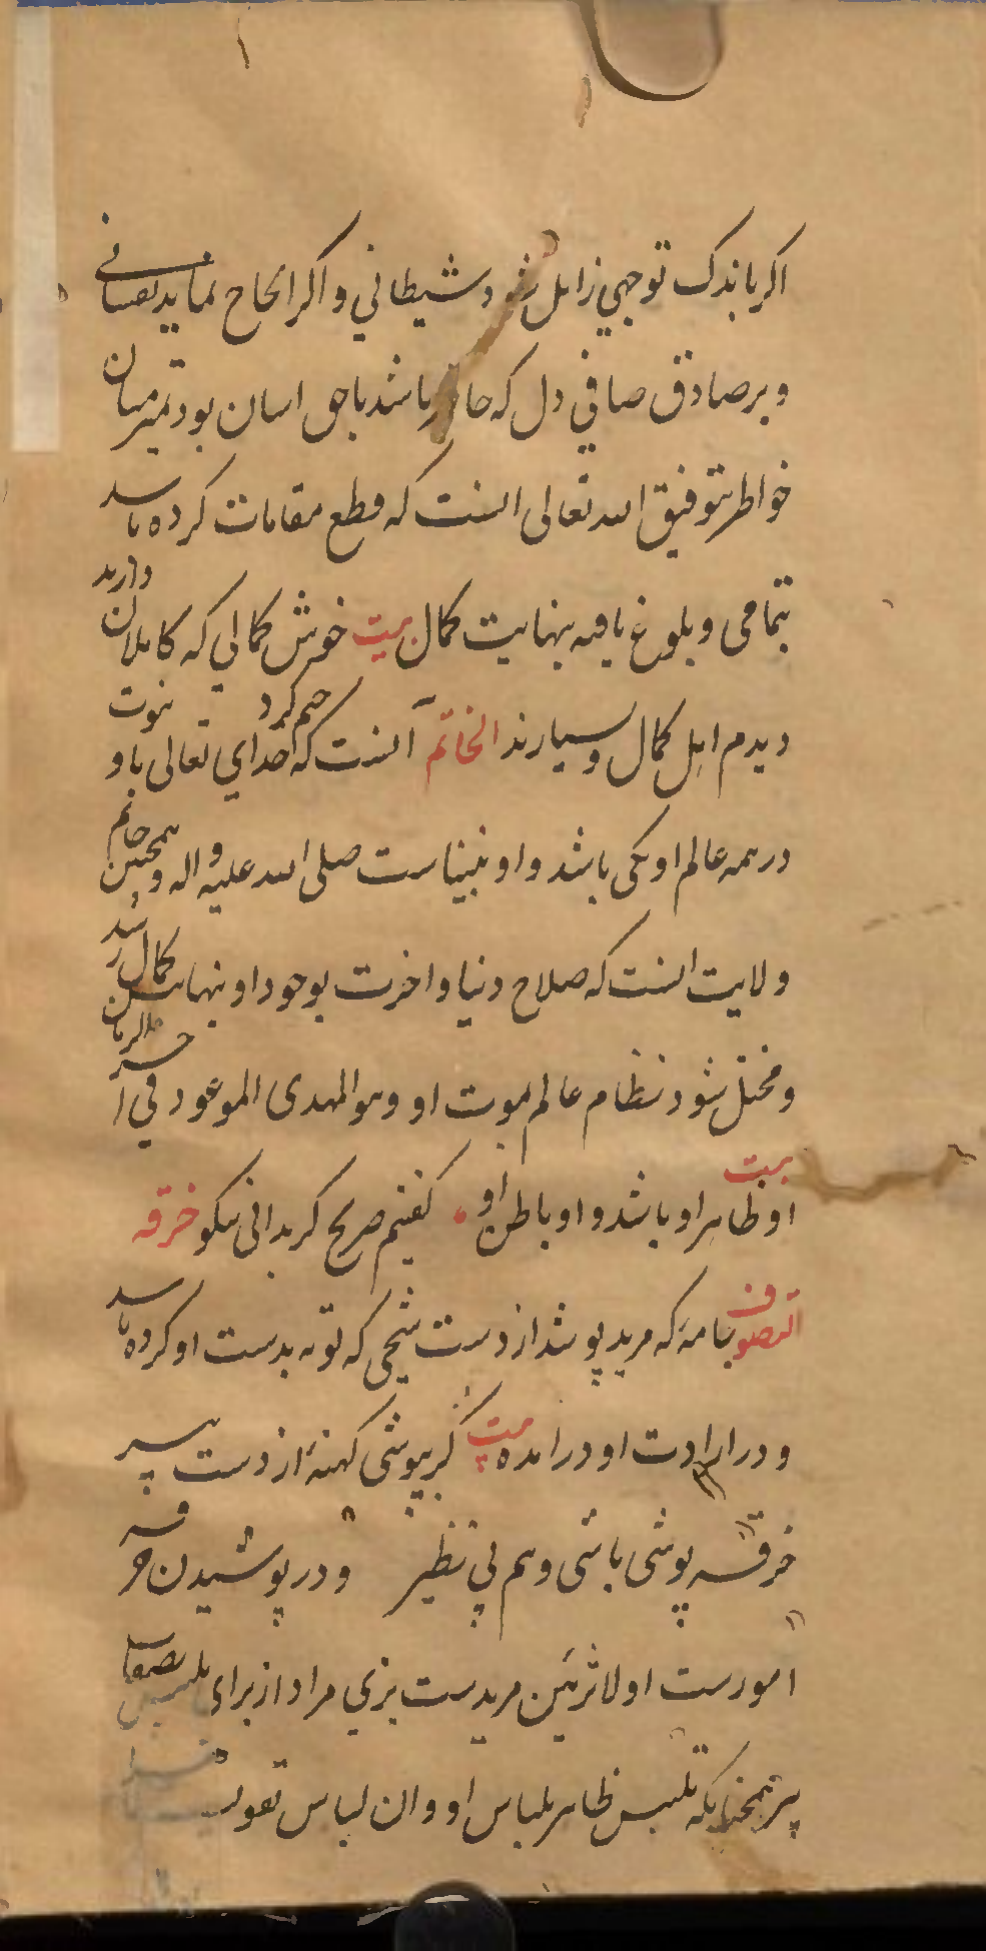 اکر باندک توجهی زایل شود شیطانی و اکر الحاح نماید نفسانی
و بر صادق صافی دل که حاضر باشد باحق اسان بود تمیز میان
خواطر بتوفیق الله تعالی النست که قطع مقامات کرده باشد
بتمامی و بلوغ یافته بنهایت کمال بیت خوش کمالی که کاملان دارند
دیدم اهل کمال و بسیارند الخاتم آنست که ختم کرد خدای تعالی باو نبوت
در همه عالم او یکی باشد و او نبیناست صلی الله علیه و اله و همچنین خاتم
ولایت انست که صلاح دنیا و اخرت بوجود او بنهایت کمال رسد
و مختل شود نظام عالم بموت او و هو المهدی الموعود فی آخر الزمان
بیت
او ظاهر او باشد و او باطن او کفتیم صریح کر بدانی نیکو خرقه
التصوف جامهٔ که مرید پوشد از دست شیخی که توبه بدست او کرده باشد
و در ارادت او درامده بیت کر بپوشی کهنهٔ از دست پیر
خرقه پوشی باشی و هم بی نظیر و در پوشیدن خرقه
امورست اولا تزیین مریدست بزی مراد از برای تلبس بصفات
پیر همچنانکه تلبس ظاهر بلباس او و ان لباس تقویست